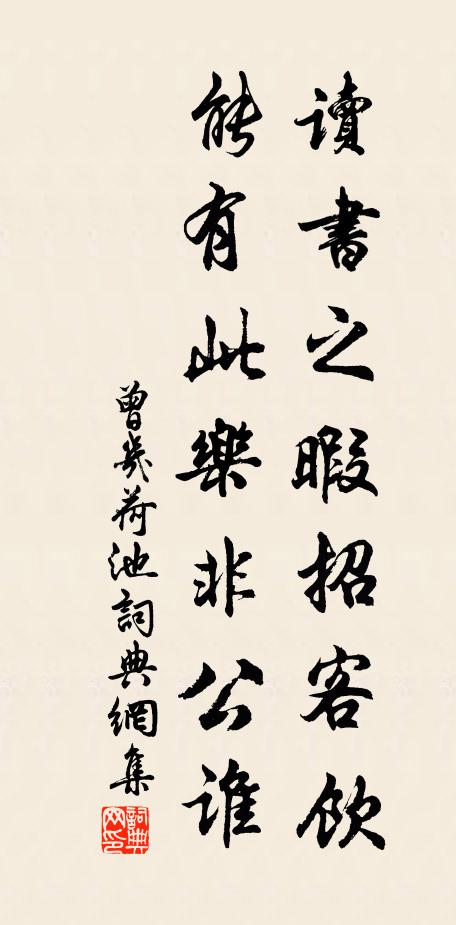 讀書之暇招客飲
能有此樂非公誰
曾幾荷池詞典網集
詞典網印